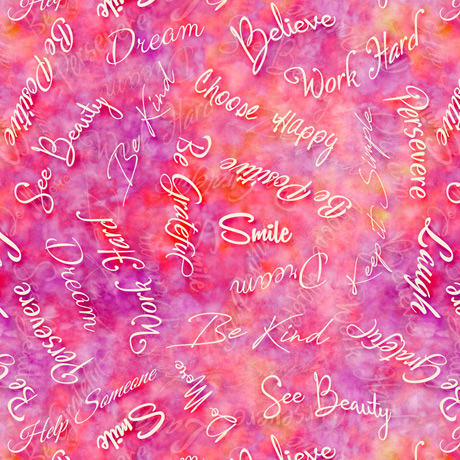 Dream
Believe
Work Hard
Be Positive
See Beauty
Be Kind
Choose Happy
Persevere
Be Grateful
Be Positive
Keep it Simple
Smile
Dream
Work Hard
Dream
Laugh
Persevere
Be Kind
Be Grateful
Help Someone
Smile
Do More
See Beauty
Believe